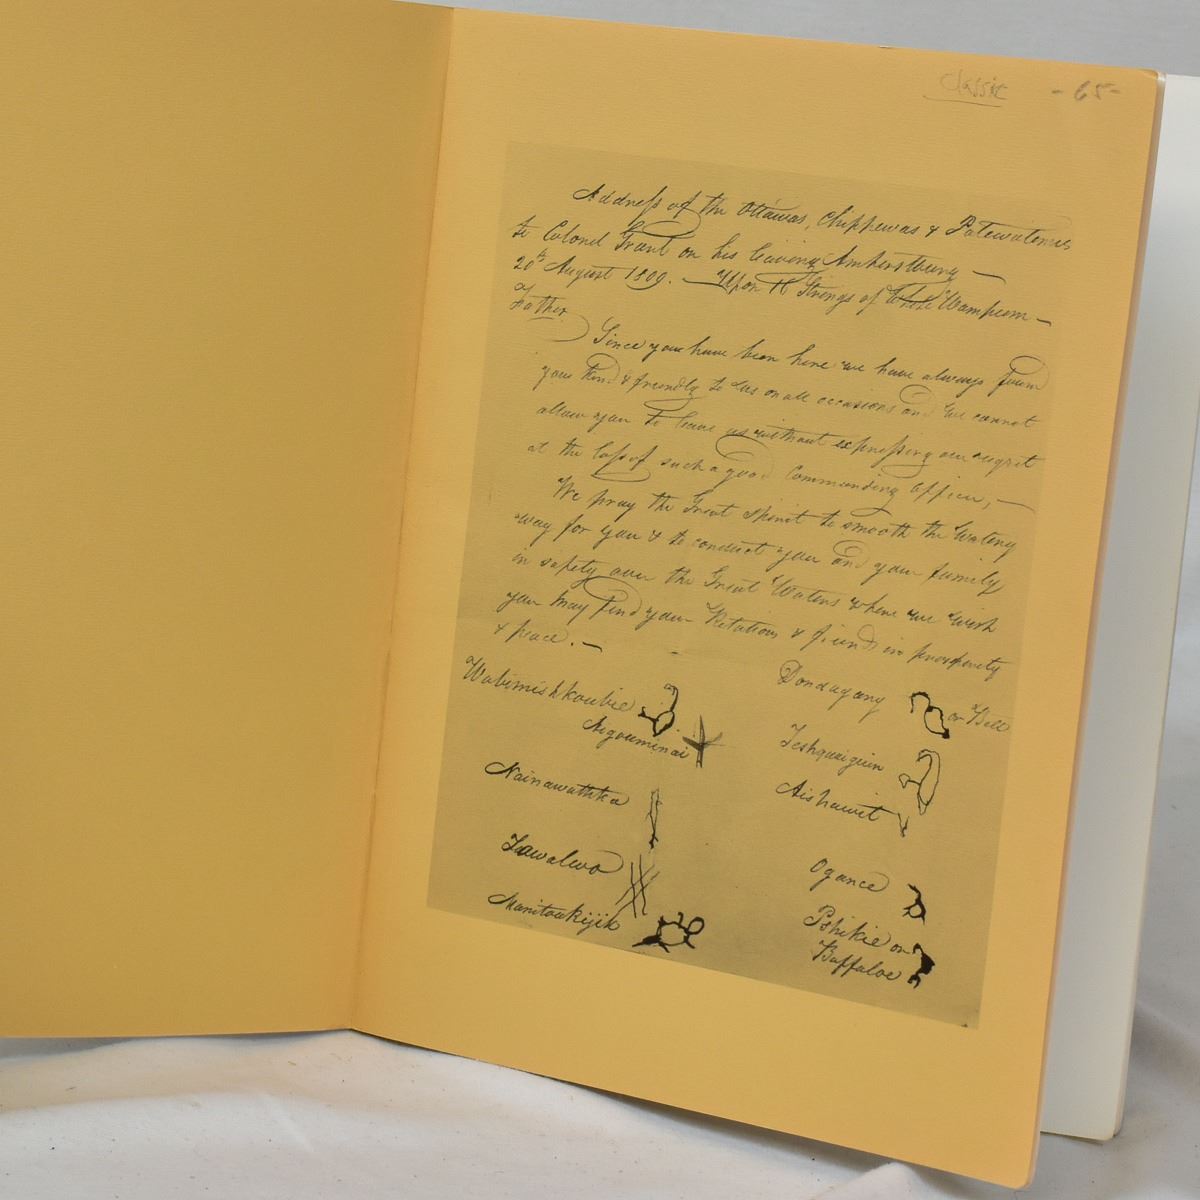 Classic -65-
Address of the Ottawas, Chippewas & Patewatemies
to Colonel Grant on his leaving Amherstburg —
20th August 1809. — Upon 10 Strings of White Wampum —
Father
Since you have been here we have always foun
you kind & friendly to us on all occasions and we cannot
allow you to leave us without expressing our regret
at the loss of such a good Commanding Officer, —
We pray the Great Spirit to smooth the Watery
way for you & to conduct you and your family
in safety over the Great Waters where we wish
you may find your Relations & friends in prosperity
& peace. —
Wabimishkoubie
Aigouminai
Nainawathka
Lawalwo
Manitoukijik
Dondagany or Bell
Teshquaiguin
Aishawit
Ogance
Pshikie or
Buffaloe